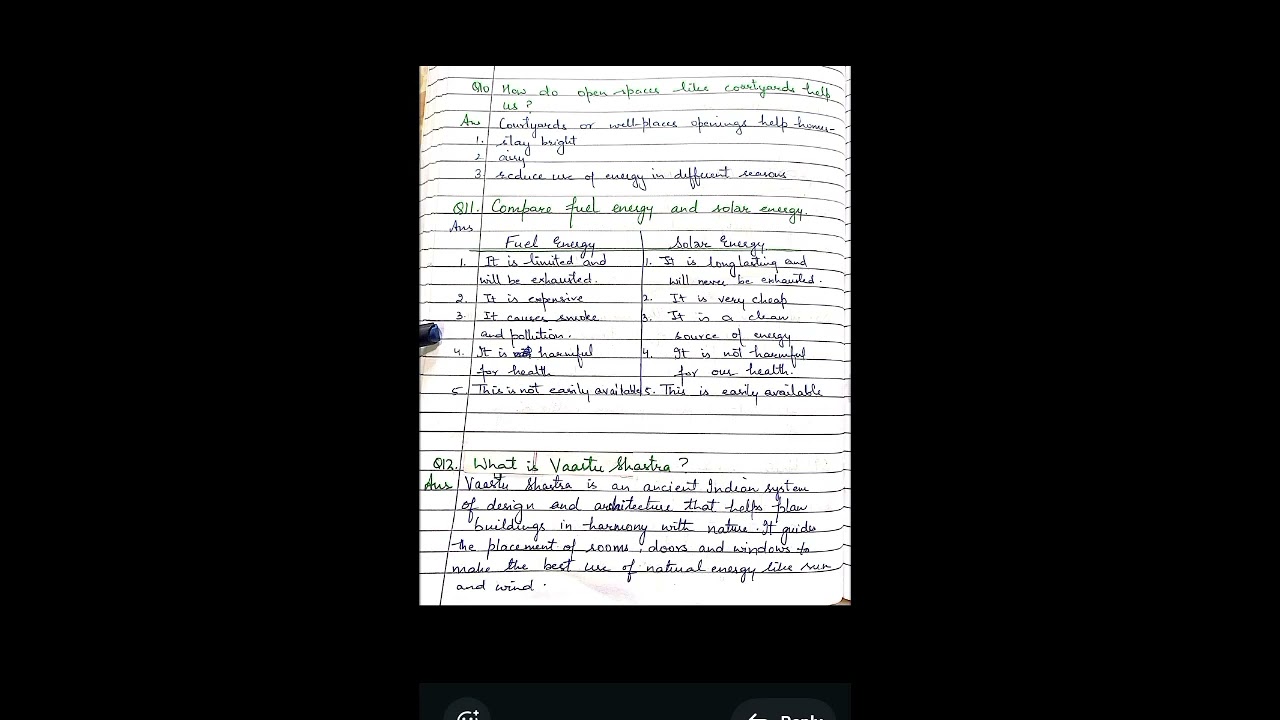 Q10 How do open spaces like courtyards help
us ?
Ans Courtyards or well-places openings help homes-
1. stay bright
2 airy
3 reduce use of energy in different seasons
Q11. Compare fuel energy and solar energy.
Ans
Fuel Energy Solar Energy
1. It is limited and 1. It is long lasting and
will be exhausted. will never be exhausted.
2. It is expensive 2. It is very cheap
3. It causes smoke 3. It is a clean
and pollution. source of energy
4. It is harmful 4. It is not harmful
for health for our health.
5 This is not easily available 5. This is easily available
Q12. What is Vaastu Shastra ?
Ans Vaastu Shastra is an ancient Indian system
of design and architecture that helps plan
buildings in harmony with nature. It guides
the placement of rooms, doors and windows to
make the best use of natural energy like sun
and wind.
Reply